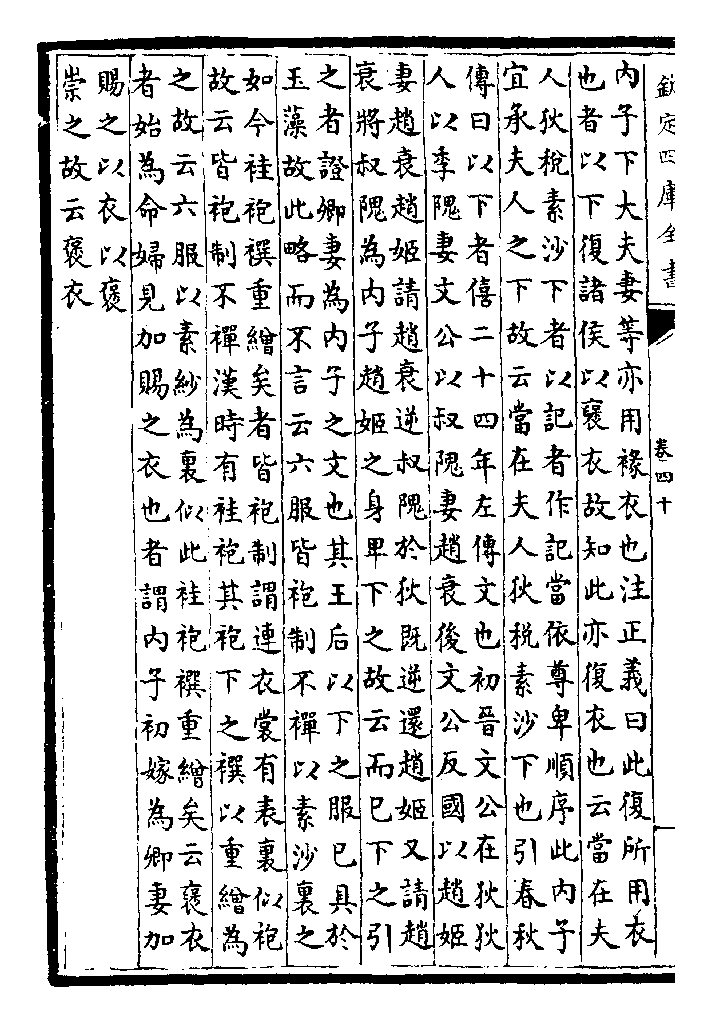 欽定四庫全書
卷四十
內子下大夫妻等亦用褖衣也注正義曰此復所用衣
也者以下復諸侯以襃衣故知此亦復衣也云當在夫
人狄稅素沙下者以記者作記當依尊卑順序此內子
宜承夫人之下故云當在夫人狄稅素沙下也引春秋
傳曰以下者僖二十四年左傳文也初晉文公在狄狄
人以季隗妻文公以叔隗妻趙衰後文公反國以趙姬
妻趙衰趙姬請趙衰逆叔隗於狄既逆還趙姬又請趙
衰將叔隗為內子趙姬之身卑下之故云而已下之引
之者證卿妻為內子之文也其王后以下之服已具於
玉藻故此略而不言云六服皆袍制不襌以素沙裏之
如今袿袍襈重繒矣者皆袍制謂連衣裳有表裏似袍
故云皆袍制不襌漢時有袿袍其袍下之襈以重繒為
之故云六服以素紗為裏似此袿袍襈重繒矣云襃衣
者始為命婦見加賜之衣也者謂內子初嫁為卿妻加
賜之以衣以襃
崇之故云襃衣